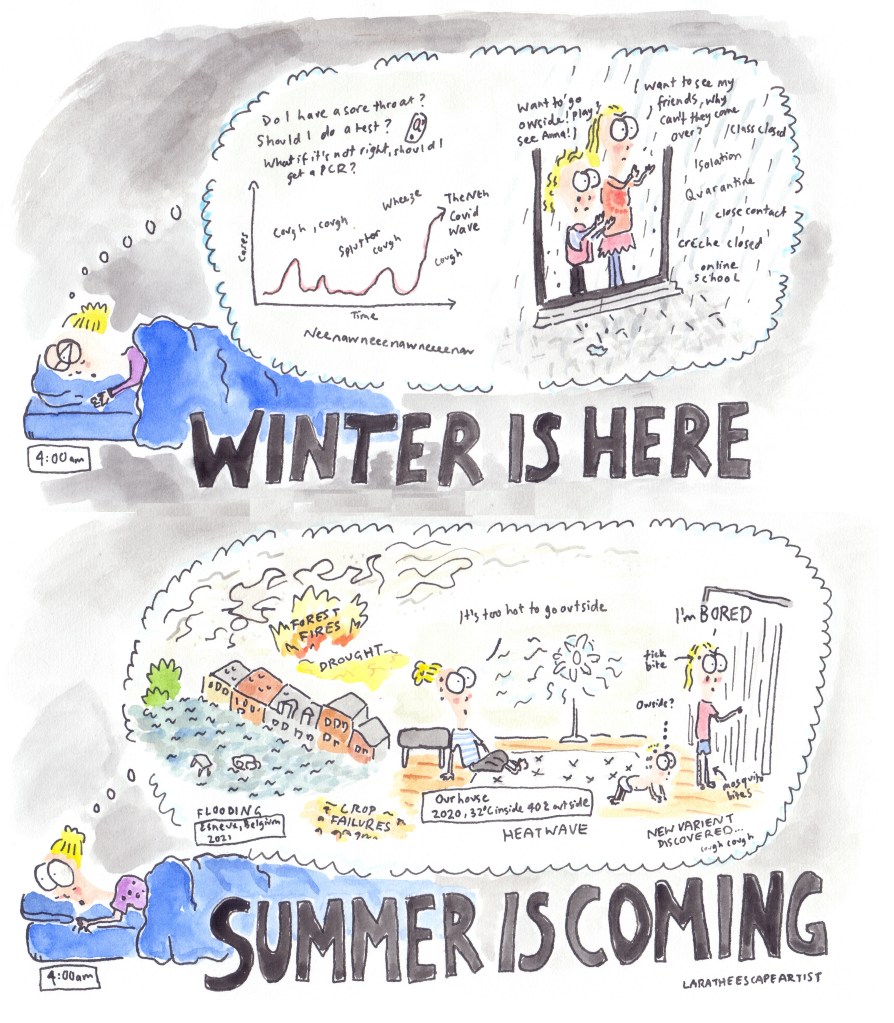 Do I have a sore throat?
Should I do a test?
What if it's not right, should I
get a PCR?
Cases
Cough, cough
Splutter
cough
Wheeze
The Nth
Covid
Wave
cough
Time
Neenawneeenawneeeenaw
Want to go
owside! play!
see Anna!
I want to see my
friends, why
can't they come
over?
Class closed
Isolation
Quarantine
close contact
crèche closed
online
school
4:00am
WINTER IS HERE
FOREST
FIRES
DROUGHT
It's too hot to go outside
I'm BORED
tick
bite
Owside?
mosquito
bites
FLOODING
Esneux, Belgium
2021
CROP
FAILURES
Our house
2020, 32°C inside 40°C outside
HEATWAVE
NEW VARIENT
DISCOVERED...
cough cough
4:00am
SUMMER IS COMING
LARATHEESCAPEARTIST